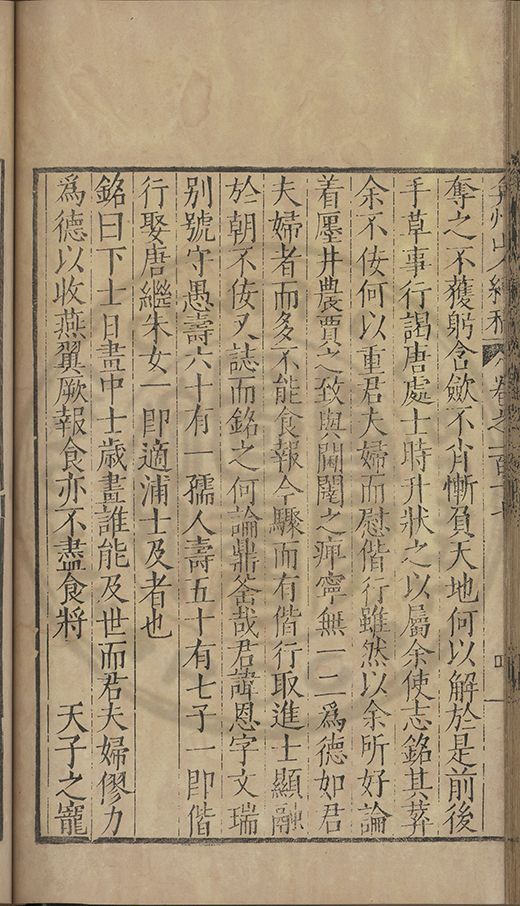 弇州山人續稿 卷之一百十七
奪之不獲躬含斂不肖慚負天地何以解於是前後
手草事行謁唐處士時升狀之以屬余使志銘其葬
余不佞何以重君夫婦而慰偕行雖然以余所好論
着廛井農賈之致與閨闥之痹寧無一二為德如君
夫婦者而多不能食報今驟而有偕行取進士顯融
於朝不佞又誌而銘之何論鼎釜哉君諱恩字文瑞
別號守愚壽六十有一孺人壽五十有七子一即偕
行娶唐繼朱女一即適浦士及者也
銘曰下士日盡中士歲盡誰能及世而君夫婦僇力
為德以收燕翼厥報食亦不盡食將 天子之寵